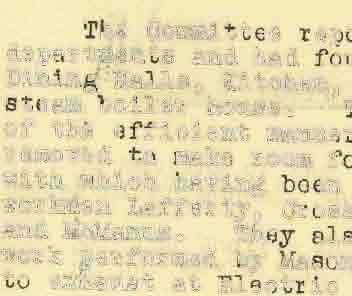 The Committee repo
departments and had fou
Dining Halls, Kitchen,
steam boiler house.
of the efficient manner
removed to make room fo
with which having been
Lafferty, Cross
and McManus. They als
work performed by Mason
to exhaust at Electric